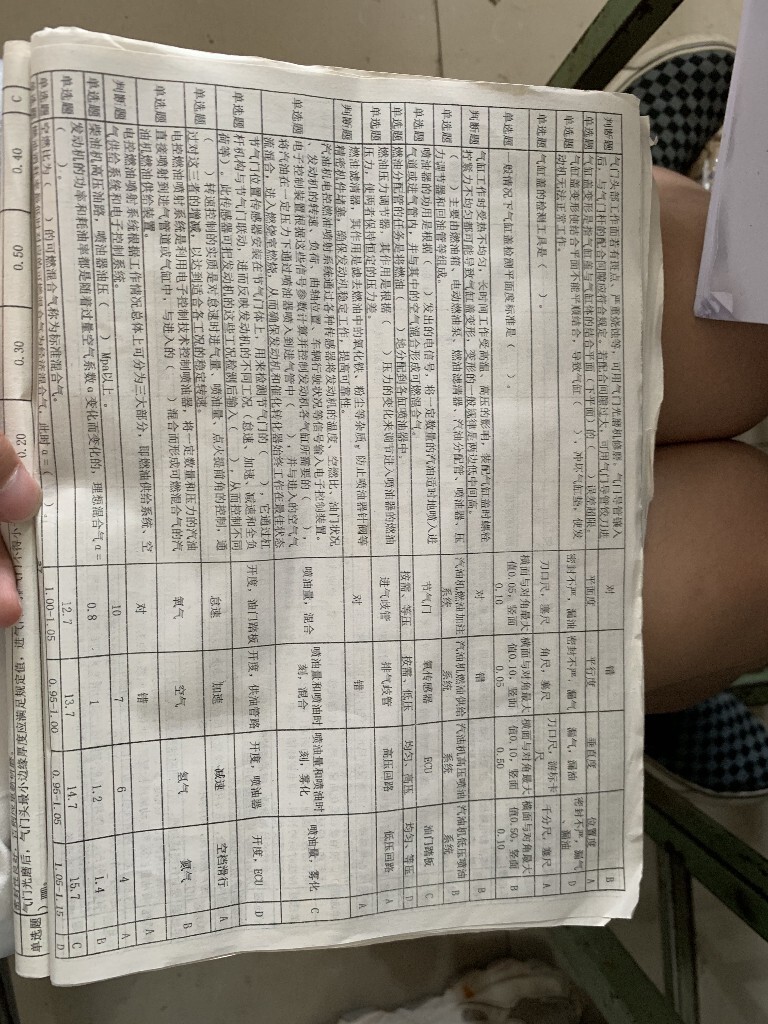 判断题 气门头部工作面若有斑点、严重烧蚀等，可用气门光磨机修磨，气门导管镶入后，与气门杆的配合间隙应符合规定，若配合间隙过大，可用气门导管铰刀进 对 错 B
单选题 气缸盖变形是指气缸盖与气缸体的结合平面（下平面）的（ ）误差超限 平面度 平行度 垂直度 位置度 A
单选题 气缸盖变形便结合平面不能平顺结合，导致气缸（ ），冲坏气缸垫，使发动机无法正常工作。 密封不严，漏油 密封不严，漏气 漏气，漏油 密封不严，漏气、漏油 D
单选题 气缸盖的检测工具是（ ）。 刀口尺，塞尺 角尺，塞尺 刀口尺，游标卡尺 千分尺，塞尺 A
单选题 一般情况下气缸盖检测平面度标准是（ ）。 横面与对角最大值0.05，竖面0.10 横面与对角最大值0.10，竖面0.05 横面与对角最大值0.10，竖面0.50 横面与对角最大值0.50，竖面0.10 B
判断题 气缸工作时受热不均匀，长时间工作受高温、高压的影响，装配气缸盖时螺栓拧紧力不均匀都可能导致气缸盖变形，变形的一般规律是两边低中间高。 对 错 B
单选题 （ ）主要由燃油箱、电动燃油泵、燃油滤清器、汽油分配管、喷油器、压力调节器和回油管等组成。 汽油机燃油加注系统 汽油机燃油供给系统 汽油机高压喷油系统 汽油机低压喷油系统 B
单选题 喷油器的功用是根据（ ）发出的电信号，将一定数量的汽油适时地喷入进气道或进气管内，并与其中的空气混合形成可燃混合气。 节气门 氧传感器 ECU 油门踏板 C
单选题 燃油分配管的任务是将燃油（ ）地分配到各缸喷油器中。 按需、等压 按需、低压 均匀、高压 均匀、等压 D
单选题 燃油压力调节器，其作用是根据（ ）压力的变化来调节进入喷油器的燃油压力，使两者保持恒定的压力差。 进气歧管 排气歧管 高压回路 低压回路 A
判断题 燃油滤清器，其作用是滤去燃油中的氧化铁、粉尘等杂质，防止喷油器针阀等精密机件堵塞，确保发动机稳定工作，提高可靠性。 对 错 A
单选题 汽油机电控燃油喷射系统通过各种传感器将发动机的温度、空燃比、油门状况、发动机的转速、负荷、曲轴位置、车辆行驶状况等信号输入电子控制装置。电子控制装置根据这些信号参数计算并控制发动机各气缸所需要的（ ），将汽油在一定压力下通过喷油器喷入到进气管中（ ），并与进入的空气气流混合，进入燃烧室燃烧，从而确保发动机和催化转化器始终工作在最佳状态 喷油量，混合 喷油量和喷油时刻，混合 喷油量和喷油时刻，雾化 喷油量，雾化 C
单选题 节气门位置传感器安装在节气门体上，用来检测节气门的（ ），它通过杠杆机构与节气门联动，进而反映发动机的不同工况（怠速、加速、减速和全负荷等）。此传感器可把发动机的这些工况检测后输入（ ），从而控制不同 开度，油门踏板 开度，供油管路 开度，喷油器 开度，ECU D
单选题 （ ）转速控制的实质是对怠速时进气量、喷油量、点火提前角的控制，通过对这三者的增减，以达到适合各工况的稳定转速。 怠速 加速 减速 空档滑行 A
单选题 电控燃油喷射系统是利用电子控制技术控制喷油器，将一定数量和压力的汽油直接喷射到进气管道或气缸中，与进入的（ ）混合而形成可燃混合气的汽油机燃油供给装置。 氧气 空气 氢气 氮气 B
判断题 电控燃油喷射系统根据工作情况总体上可分为三大部分，即燃油供给系统、空气供给系统和电子控制系统。 对 错 A
单选题 柴油机高压油路，喷油器油压（ ）Mpa以上。 10 7 6 4 A
单选题 发动机的功率和耗油率都是随着过量空气系数α变化而变化的，理想混合气α=（ ）。 0.8 1 1.2 1.4 B
单选题 空燃比为（ ）的可燃混合气称为标准混合气。 12.7 13.7 14.7 15.7 C
此时α=（ ）。 1.00-1.05 0.95-1.00 0.95-1.05 1.05-1.15 D
C 0.40 0.50 0.30 0.20
单选题 气门光磨后，气门头最小边缘厚度应满足规定值，进气门